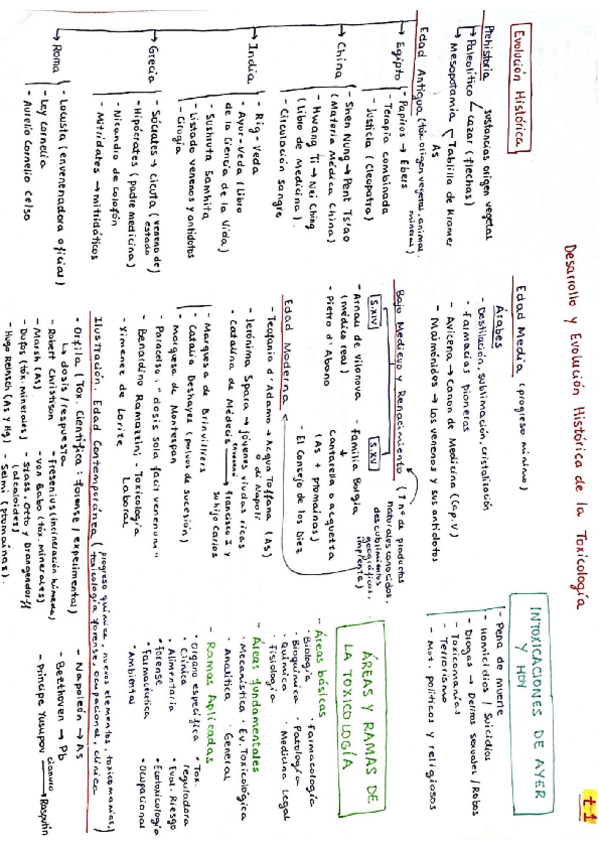 t.1
Desarrollo y Evolución Histórica de la Toxicología
Evolución Histórica
Prehistoria sustancias origen vegetal
→ Paleolítico cazar (flechas)
→ Mesopotamia Tablilla de Kramer
As
Edad Antigua (tóx. origen vegetal, animal,
mineral)
→ Egipto - Papiros → Ebers
- Terapia combinada
- Justicia (Cleopatra)
→ China - Shen Nung → Pent Ts'ao
(Materia Médica China)
- Hwang Ti → Nei Ching
(Libro de Medicina).
- Circulación sangre
→ India - Rig-Veda
- Ayur-Veda (Libro
de la Ciencia de la Vida)
- Sushruta Samhita
- Listado venenos y antídotos
- Cirugía
→ Grecia - Sócrates → cicuta (veneno de
estado)
- Hipócrates (padre medicina)
- Nicandro de Colofón
- Mitridates → mitridáticos
→ Roma - Locusta (envenenadora oficial)
- Ley Cornelia
- Aurelio Cornelio Celso
Edad Media (progreso mínimo)
Árabes
- Destilación, sublimación, cristalización
- Farmacias pioneras
- Avicena → Canon de Medicina (Cap. V)
- Maimónides → Los venenos y sus antídotos
Bajo Medievo y Renacimiento (↑ nº de productos
naturales conocidos,
descubrimientos
geográficos,
imprenta)
S.XIV
- Arnau de Vilanova
(médico real)
- Pietro d'Abano
S.XV
- Familia Borgia
↓
Cantarella o acquetta
(As + ptomaínas)
- El Consejo de los Diez
Edad Moderna
- Teofania d'Adamo → Acqua Toffana (As)
o di Napoli
- Jerónima Spara → jóvenes viudas ricas
- Catalina de Médecis → Francisco I y
su hijo Carlos
- Marquesa de Brinvilivers
- Catalia Deshayes (polvos de sucesión)
- Marquesa de Montespan
- Paracelso: "dosis sola facit venenum"
- Benardino Ramazzini - Toxicología
Laboral
- Ximenez de Lorite
Ilustración. Edad Contemporánea (progreso química, nuevos elementos, toxicomanías,
toxicología forense, ocupacional, clínica
- Orfila (Tox. Científica: forense / experimental)
↳ dosis / respuesta
- Robert Christhson
- Marsh (As)
- Dups (tóx. minerales)
- Hugo Reinsch (As y Hg)
- Fresenius (incineración húmeda)
- von Babo (tóx. minerales)
- Stass, Otto y Drangendorff
(alcaloides)
- Selmi (ptomaínas).
INTOXICACIONES DE AYER
Y HOY
- Pena de muerte
- Homicidios / Suicidios
- Drogas → Delitos sexuales / Robos
- Toxicomanías
- Terrorismo
- Mot. políticos y religiosos
ÁREAS Y RAMAS DE
LA TOXICOLOGÍA
- Áreas básicas
· Biología · Farmacología
· Bioquímica · Patología
· Química · Medicina Legal
· Fisiología
- Áreas fundamentales
· Mecanística · Ev. Toxicológica
· Analítica · General
- Ramas Aplicadas
· Órgano específica · Tox.
· Clínica reguladora
· Alimentaria · Eval. Riesgo
· Forense · Ecotoxicología
· Farmacéutica · Ocupacional
· Ambiental
- Napoleón → As
- Beethoven → Pb
- Príncipe Yusupov cianuro → Rasputín